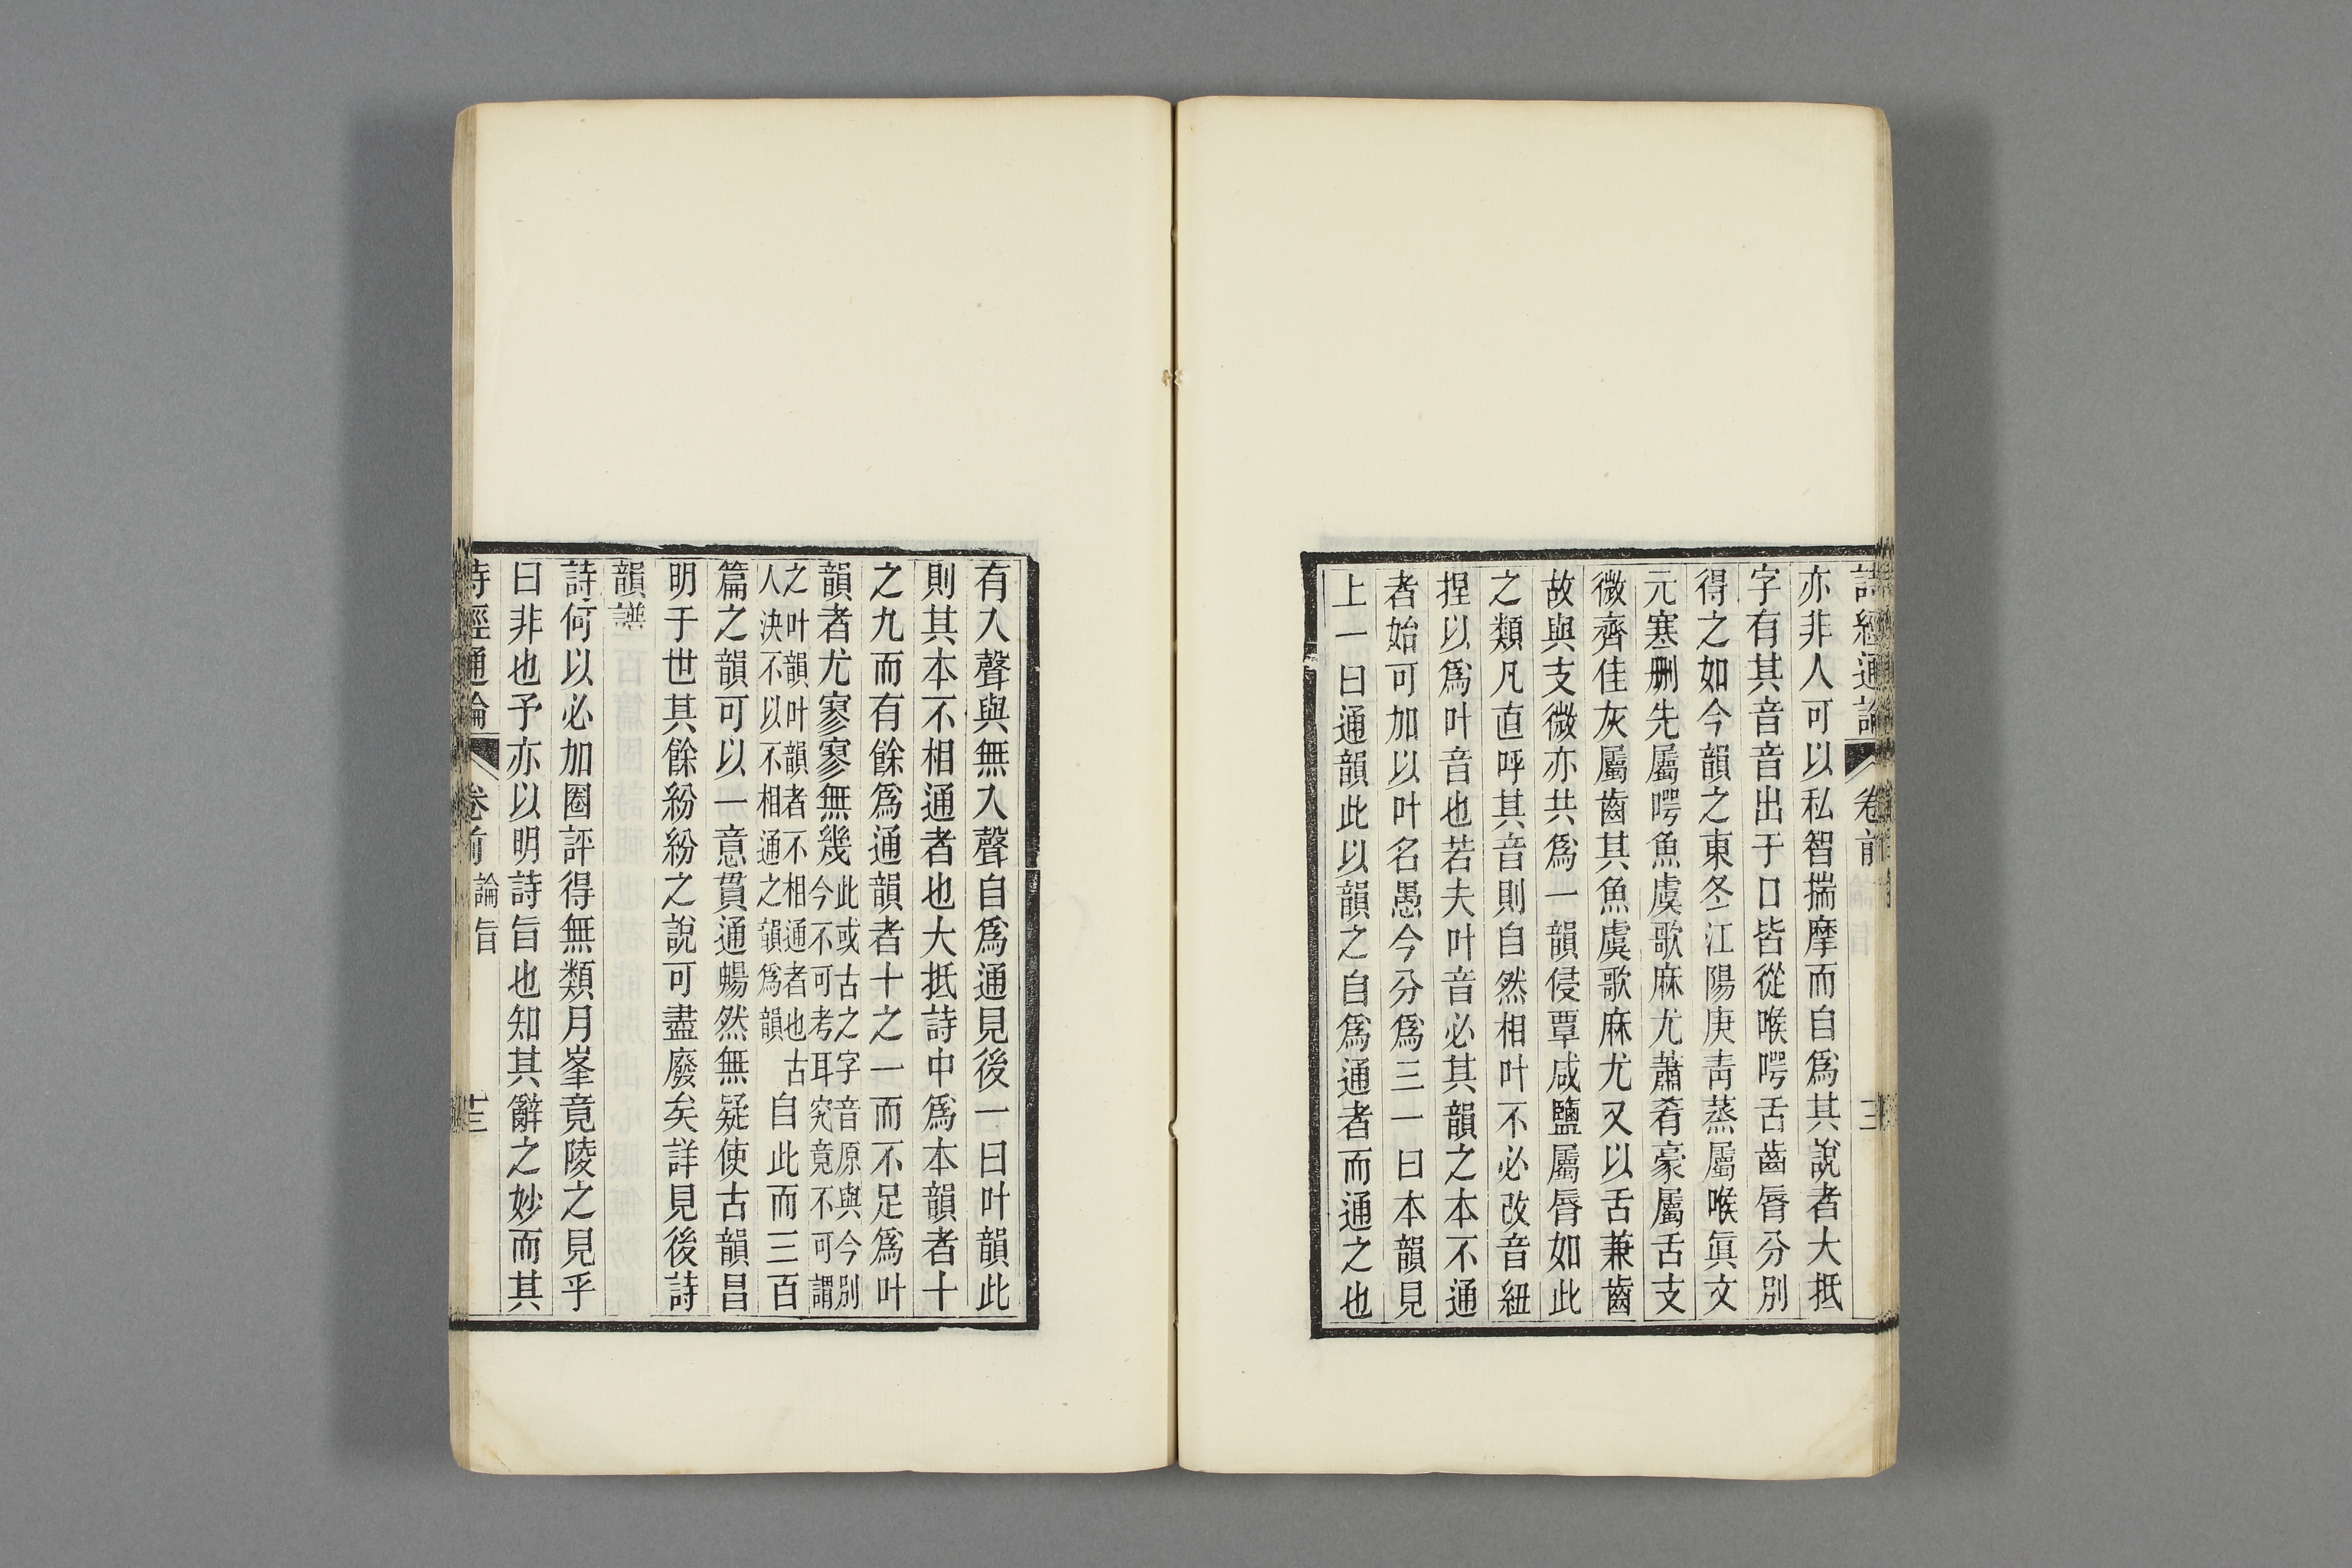 詩經通論 卷前
亦非人可以私智揣摩而自爲其說者大抵
字有其音音出于口皆從喉啞舌齒脣分別
得之如今韻之東冬江陽庚靑蒸屬喉眞文
元寒刪先屬啞魚虞歌麻尤蕭肴豪屬舌支
微齊佳灰屬齒其魚虞歌麻尤又以舌兼齒
故與支微亦共爲一韻侵覃咸鹽屬脣如此
之類凡直呼其音則自然相叶不必改音紐
捏以爲叶音也若夫叶音必其韻之本不通
者始可加以叶名愚今分爲三一曰本韻見
上一曰通韻此以韻之自爲通者而通之也
有入聲與無入聲自爲通見後一曰叶韻此
則其本不相通者也大抵詩中爲本韻者十
之九而有餘爲通韻者十之一而不足爲叶
韻者尤寥寥無幾此或古之字音原與今別
今不可考耳究竟不可謂
之叶韻叶韻者不相通者也古
人決不以不相通之韻爲韻自此而三百
篇之韻可以一意貫通暢然無疑使古韻昌
明于世其餘紛紛之說可盡廢矣詳見後詩
韻譜
詩何以必加圈評得無類月峯竟陵之見乎
曰非也予亦以明詩旨也知其辭之妙而其
詩經通論 卷前 論旨 十三